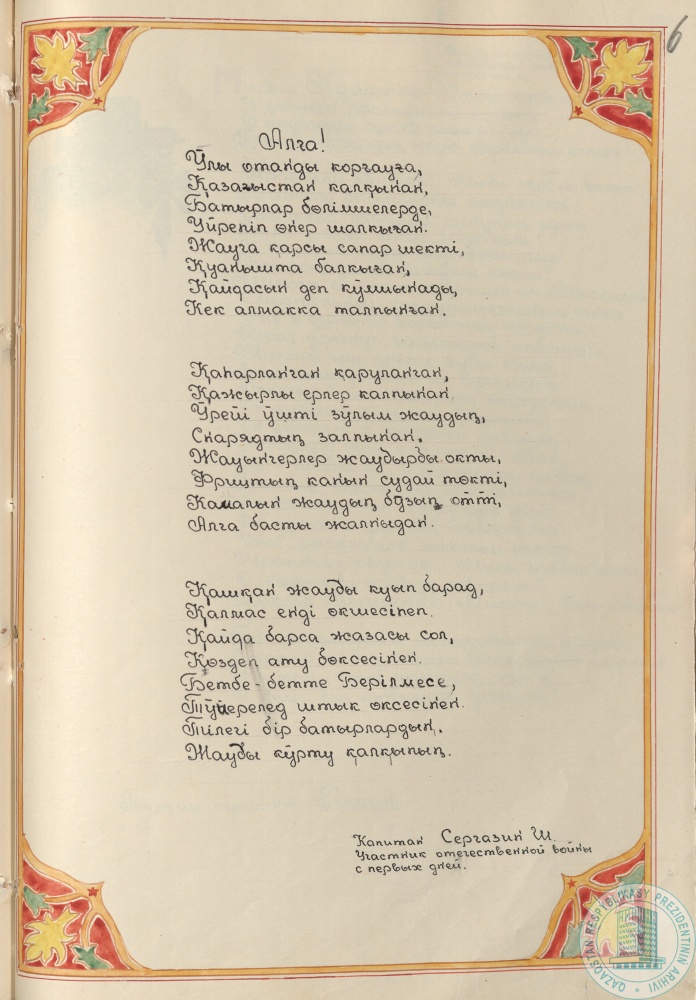 6
Алға!
Ұлы отанды қорғауға,
Қазағыстан калқынан,
Батырлар бөлімшелерде,
Үйреніп өнер шалкыған.
Жауга қарсы сапар шекті,
Қуанышта балкыған,
Қайдасың деп құмшынады,
Кек алмакка талпынған.
Қаһарланған қаруланған,
Қажырлы ерлер калпынан
Үрейі ұшті зұлым жаудың,
Снарядтың залпынан.
Жауынгерлер жаудырды окты,
Фрицтың канын судай төкті,
Камалын жаудың бұзып өтті,
Алга басты жалпыдан.
Қашқан жауды куып барад,
Қалмас енді өкшесінен.
Қайда барса жазасы сол,
Көздеп ату бөксесінен.
Бетбе-бетте Берілмесе,
Түйрелед штык өксесінен.
Тілегі бір батырлардың.
Жауды құрту қалқының.
Капитан Сергазин Ш.
Участник отечественной войны
с первых дней.
QAZAQSTAN RESPYBLIKASY PREZIDENTINIŃ ARHIVI